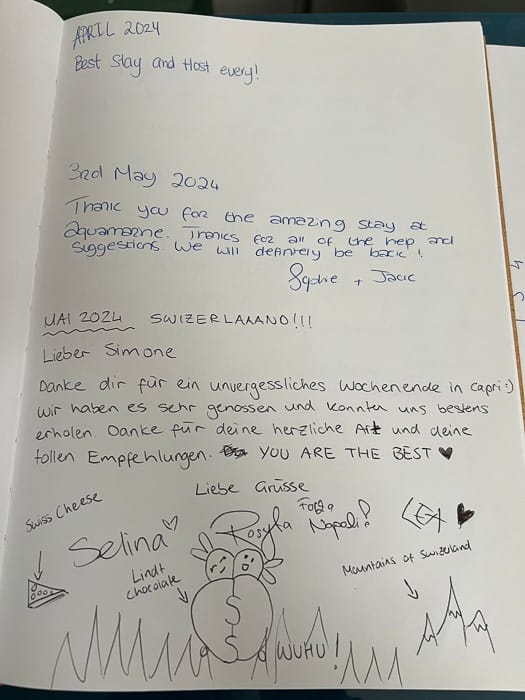 APRIL 2024
Best Stay and Host every!
3rd May 2024
Thank you for the amazing stay at
aquamarine. Thanks for all of the help and
suggestions. We will definitely be back!
Sophie + Jack
MAI 2024 SWIZERLAAAND!!!
Lieber Simone
Danke dir für ein unvergessliches Wochenende in Capri :)
Wir haben es sehr genossen und konnten uns bestens
erholen. Danke für deine herzliche Art und deine
tollen Empfehlungen. YOU ARE THE BEST ♥
Liebe Grüsse
Swiss Cheese
Selina
Forza
Napoli!
LEA
Lindt
chocolate
Mountains of Swizerland
S
S
WUHU!